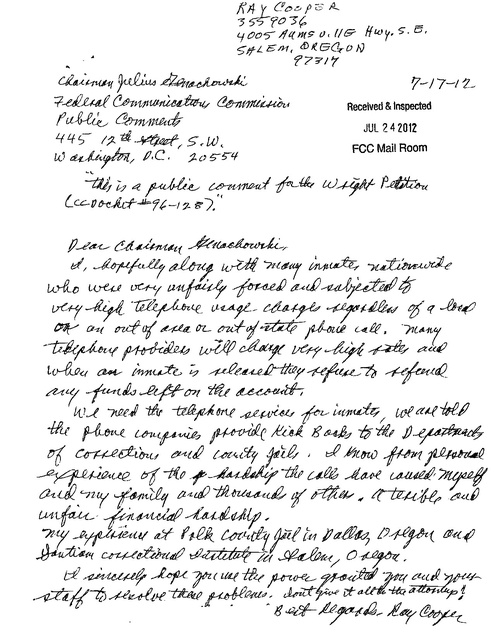 RAY COOPER
3559036
4005 AUMSVILLE Hwy. S.E.
SALEM, OREGON
97317
7-17-12
"Chairman Julius Genachowski
Federal Communications Commission
Public Comments
445 12th street, S.W.
Washington, D.C. 20554
Received & Inspected
JUL 24 2012
FCC Mail Room
"This is a public comment for the Wright Petition
(CC Docket #96-128)."
Dear Chairman Genachowski,
I, hopefully along with many inmates nationwide
who were very unfairly forced and subjected to
very high telephone usage charges regardless of a local
or an out of area or out of state phone call. Many
telephone providers will charge very high rates and
when an inmate is released they refuse to refund
any funds left on the account.
We need the telephone services for inmates, we are told
the phone companies provide Kick Backs to the Departments
of corrections and county jails. I know from personal
experience of the hardship the calls have caused myself
and my family and thousands of other. A terible and
unfair financial hardship.
My experience at Polk County Jail in Dallas, Oregon and
Santiam correctional Institute in Salem, Oregon.
I sincerely hope you use the power granted you and your
staff to resolve these problems. Don't give it all to the attorneys!
Best Regards Ray Cooper